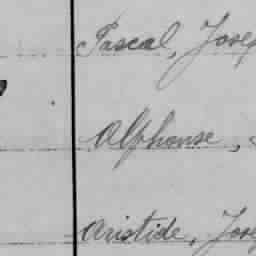 Pascal, Josep
Alphonse,
Aristide, Jose